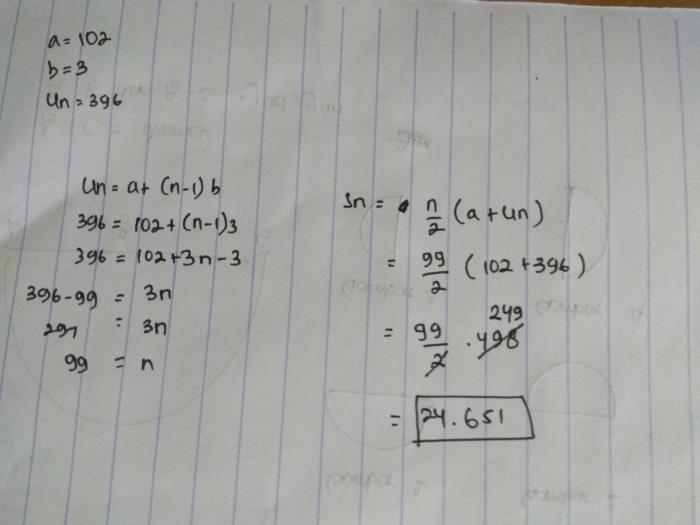 a = 102
b = 3
Un = 396
Un = a + (n-1) b
396 = 102 + (n-1)3
396 = 102 + 3n - 3
396 - 99 = 3n
297 = 3n
99 = n
Sn = n/2 (a + Un)
= 99/2 (102 + 396)
= 99/2 . 498 249
= 24.651